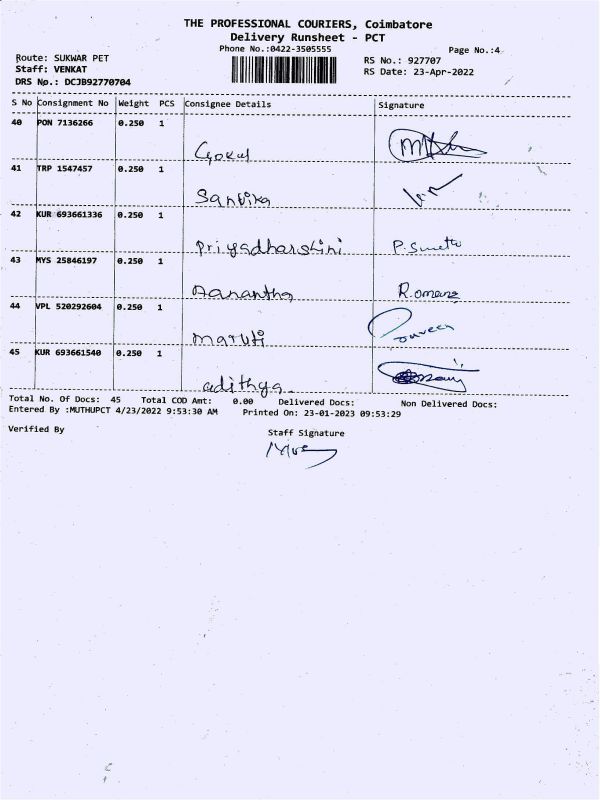 THE PROFESSIONAL COURIERS, Coimbatore
Delivery Runsheet - PCT
Phone No.:0422-3505555 Page No.:4
Route: SUKWAR PET RS No.: 927707
Staff: VENKAT RS Date: 23-Apr-2022
DRS No.: DCJB92770704
S No Consignment No Weight PCS Consignee Details Signature
40 PON 7136266 0.250 1
Gokul
41 TRP 1547457 0.250 1
Santhiya
42 KUR 693661336 0.250 1
Priyadharshini P.
43 MYS 25846197 0.250 1
Aanantha R.
44 VPL 520292604 0.250 1
Maruti Praveen
45 KUR 693661540 0.250 1
adithya
Total No. Of Docs: 45 Total COD Amt: 0.00 Delivered Docs: Non Delivered Docs:
Entered By :MUTHUPCT 4/23/2022 9:53:30 AM Printed On: 23-01-2023 09:53:29
Verified By Staff Signature